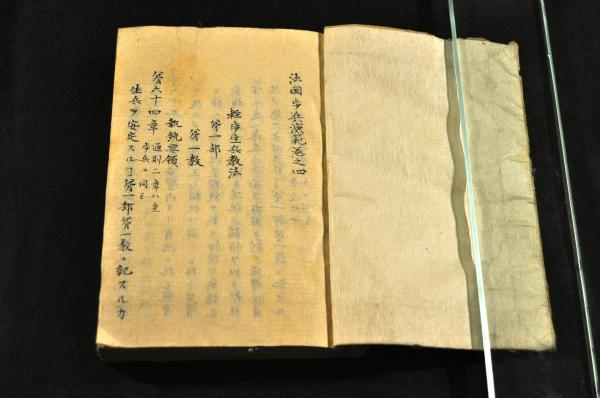 法国歩兵演範巻之四
軽歩生兵教法
第一部
第一教
執銃要領
第六十四章 通則二章ハ重
歩兵ニ同シ
生兵ヲ安定スルヿ第一部第一教ニ記スルカ